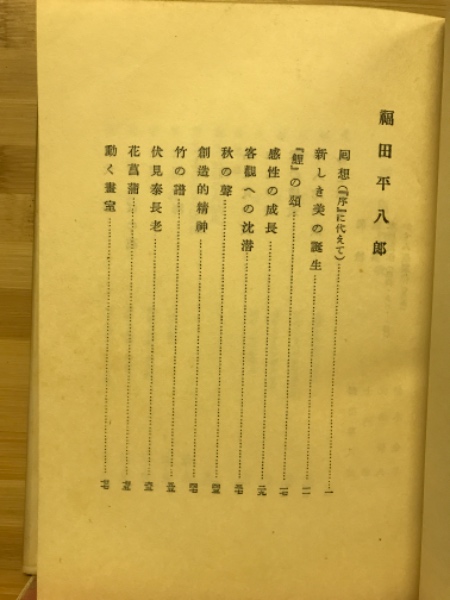 福田平八郎
回想(『序』に代えて)……一
新しき美の誕生……一一
『鯉』の頌……一七
感性の成長……二九
客觀への沈潜……三七
秋の聲……四五
創造的精神……四七
竹の譜……五五
伏見泰長老……六五
花菖蒲……七五
動く畫室……七七